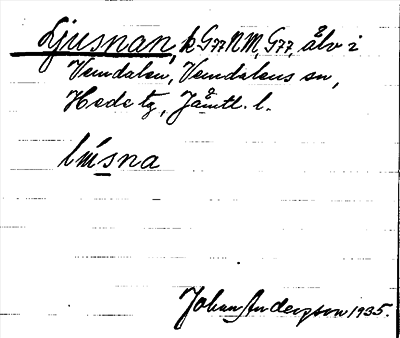 Ljusnan, k G77 NM, G77, älv i
Vemdalen, Vemdalens sn,
Hede tg, Jämtl. l.
Johan Anderson 1935.